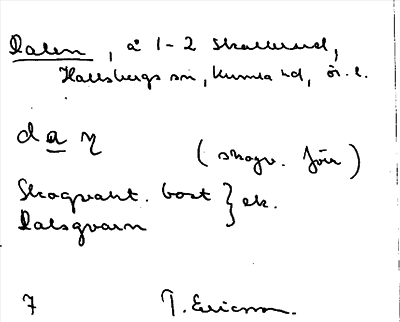 Dalen, å 1-2 Skallerud,
Hallsbergs sn, Kumla hd, Ör. l.
daŋ
(skogv. förr)
Skogvakt. bost } ek.
Dalsqvarn
7 T. Ericsson.